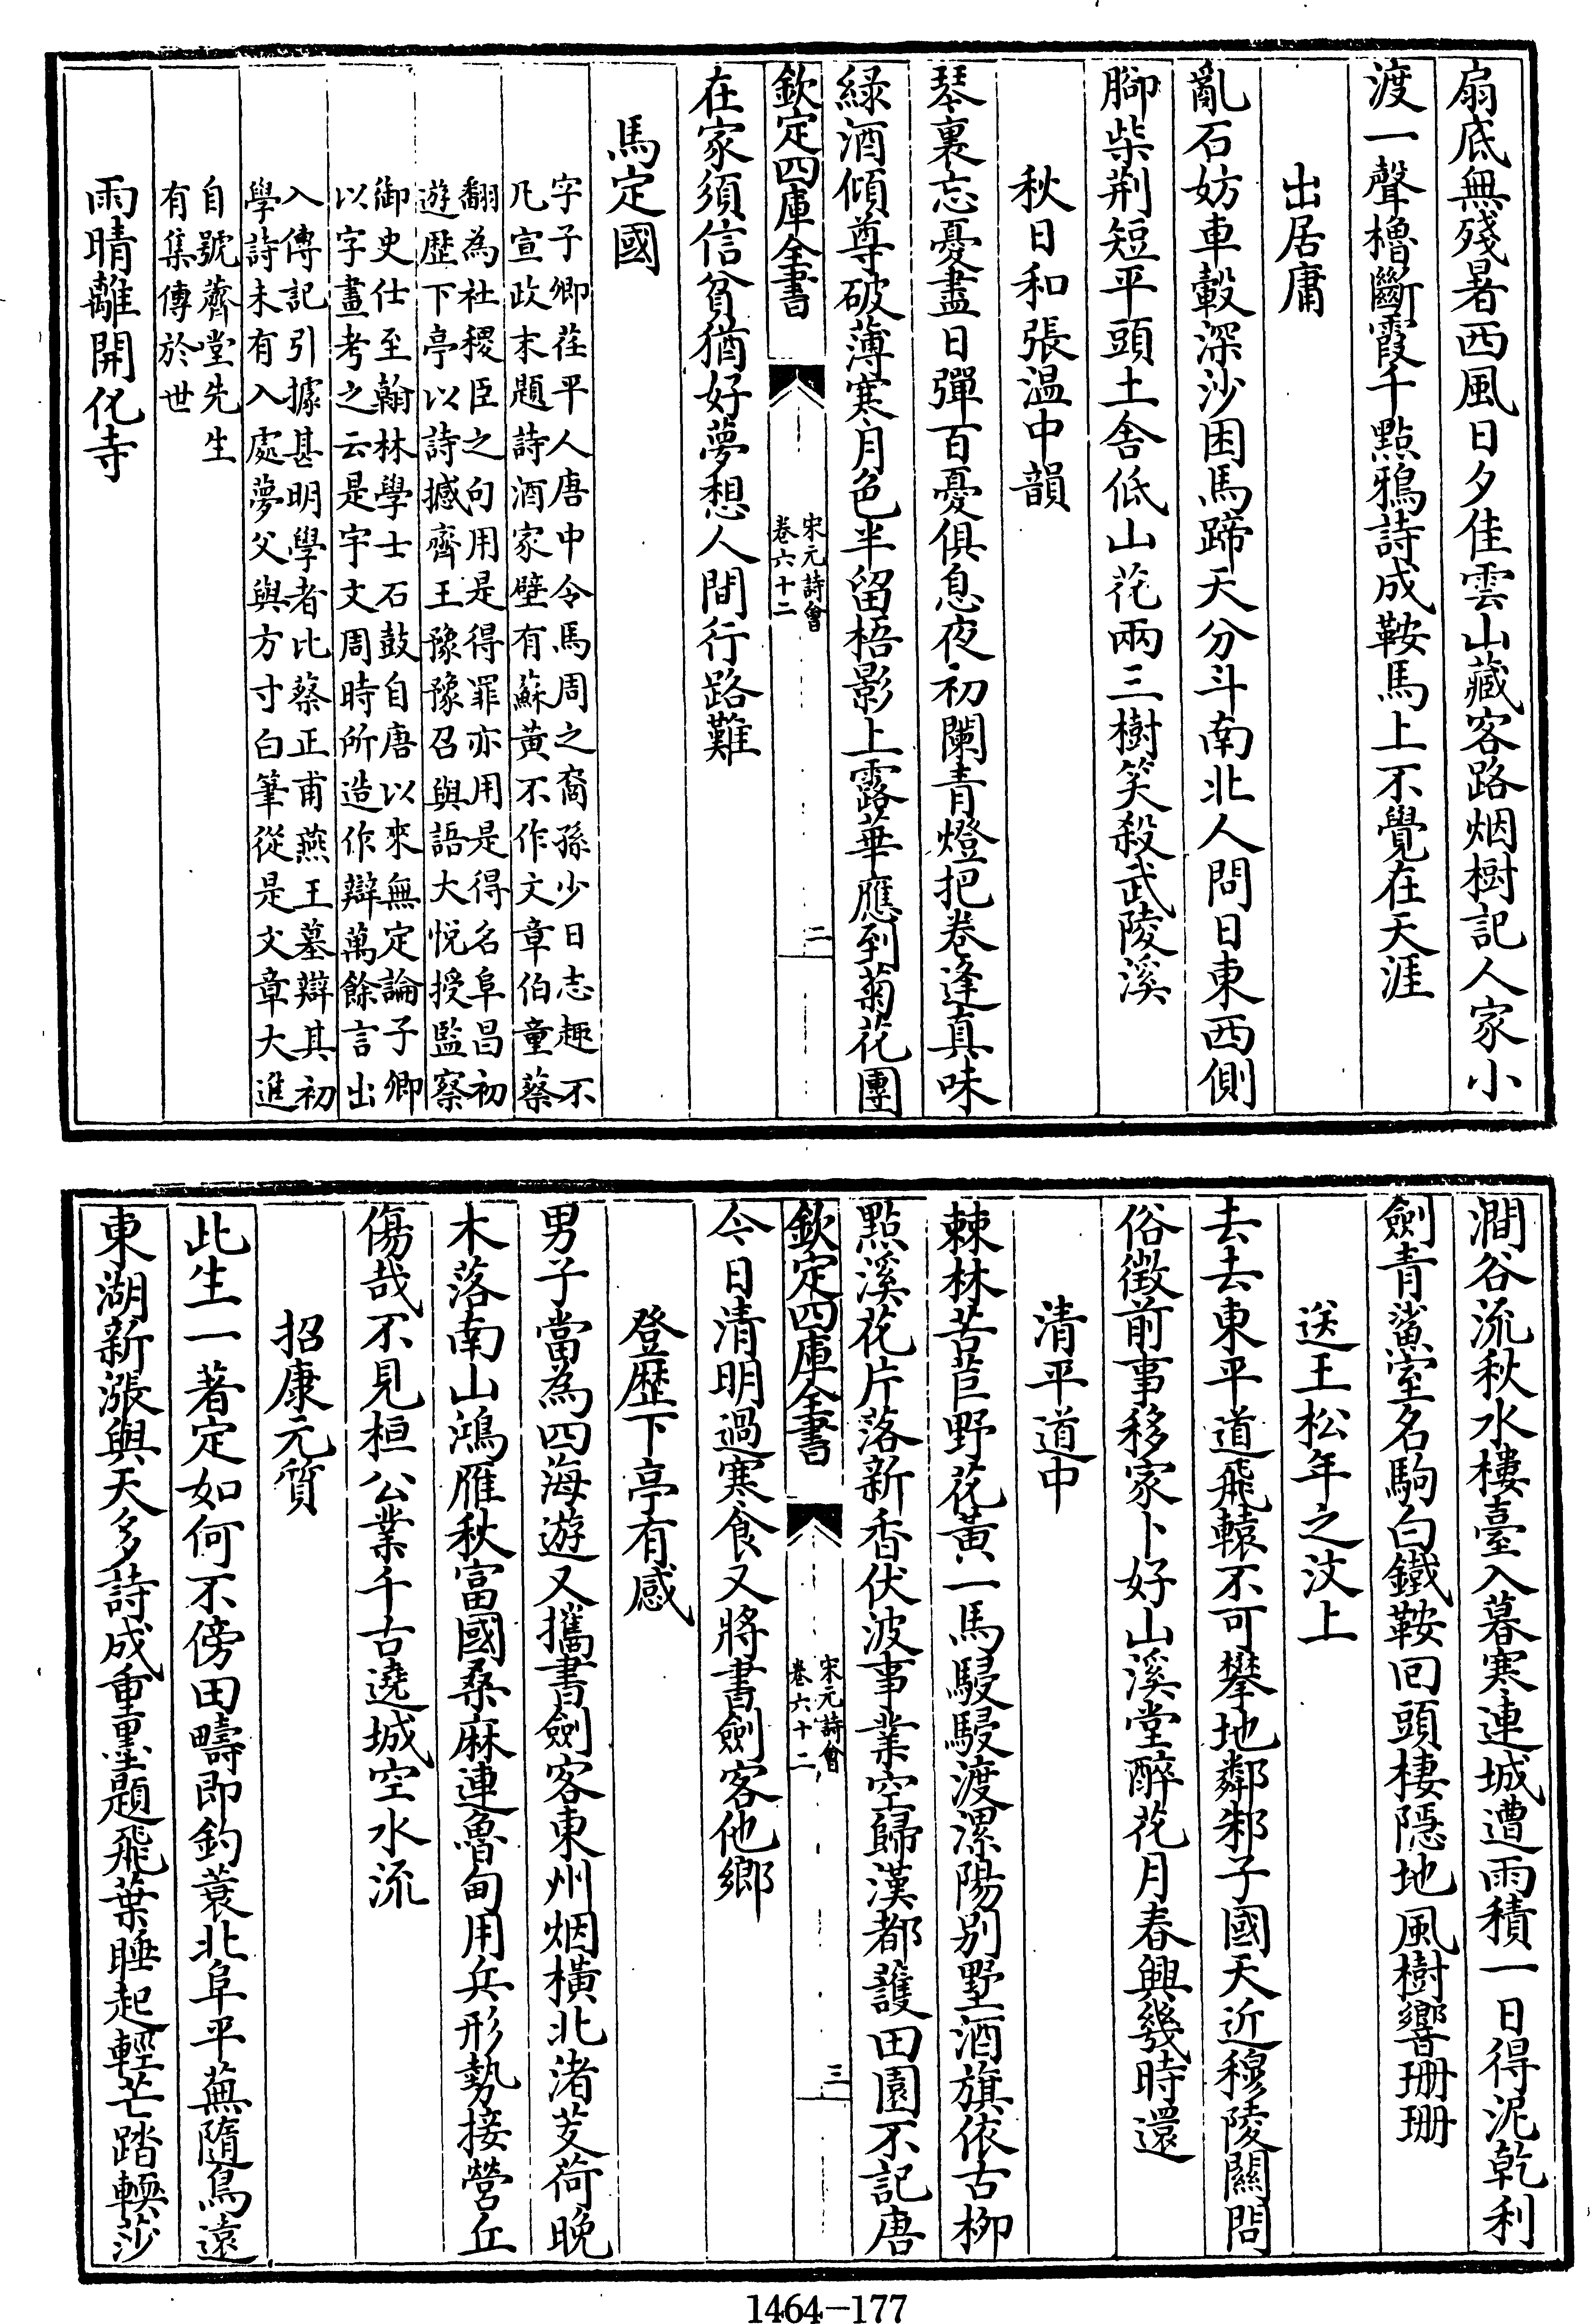 扇底無殘暑西風日夕佳雲山藏客路烟樹記人家小
渡一聲櫓斷霞千點鴉詩成鞍馬上不覺在天涯
出居庸
亂石妨車轂深沙困馬蹄天分斗南北人問日東西側
腳柴荆短平頭土舎低山花兩三樹笑殺武陵溪
秋日和張温中韻
琴裏忘憂盡日彈百憂俱息夜初闌青燈把卷逢真味
緑酒傾尊破薄寒月色半留梧影上露華應到菊花團
欽定四庫全書
宋元詩會
卷六十二
二
在家須信貧猶好夢想人間行路難
馬定國
字子卿茌平人唐中令馬周之裔孫少日志趣不
凡宣政末題詩酒家壁有蘇黃不作文章伯童蔡
翻為社稷臣之句用是得罪亦用是得名阜昌初
遊歴下亭以詩撼齊王豫豫召與語大悦授監察
御史仕至翰林學士石鼓自唐以來無定論子卿
以字畫考之云是宇文周時所造作辯萬餘言出
入傳記引據甚明學者比蔡正甫燕王墓辯其初
學詩未有入處夢父與方寸白筆從是文章大進
自號薺堂先生
有集傳於世
雨晴離開化寺
澗谷流秋水樓臺入暮寒連城遭雨積一日得泥乾利
劍青鯊室名駒白鐵鞍囘頭棲隠地風樹響珊珊
送王松年之汶上
去去東平道飛轅不可攀地鄰邾子國天近穆陵關問
俗徴前事移家卜好山溪堂醉花月春興幾時還
清平道中
棘林苦苣野花黃一馬駸駸渡漯陽别墅酒旗依古柳
點溪花片落新香伏波事業空歸漢都護田園不記唐
欽定四庫全書
宋元詩會
卷六十二
三
今日清明過寒食又將書劍客他鄉
登歴下亭有感
男子當為四海遊又攜書劍客東州烟橫北渚芰荷晚
木落南山鴻雁秋富國桑麻連魯甸用兵形勢接營丘
傷哉不見桓公業千古遶城空水流
招康元質
此生一著定如何不傍田疇即釣蓑北阜平蕪隨鳥遠
東湖新漲與天多詩成重墨題飛葉睡起輕芒踏輭沙
1464-177